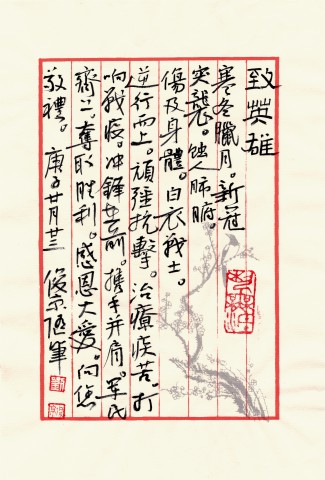 致英雄
寒冬臘月。新冠
突襲。蝕人肺腑。
傷及身體。白衣戰士。
逆行而上。頑强抗擊。治療疾苦。打
响戰疫。冲鋒在前。携手并肩。軍民
齊心。奪取胜利。感恩大愛。向您
敬禮。庚子 月廿三 俊 随筆